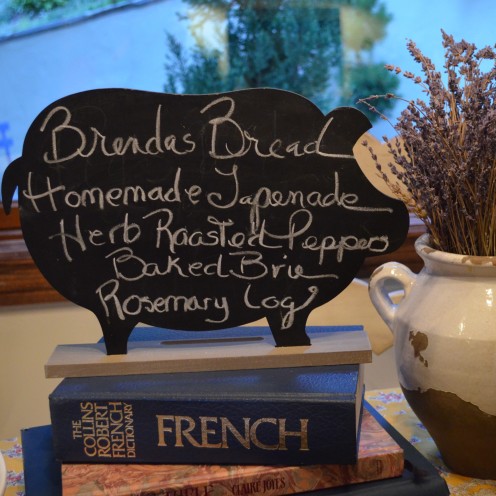 Brenda's Bread
Homemade Tapenade
Herb Roasted Peppers
Baked Brie
Rosemary Log
THE
COLLINS
ROBERT
FRENCH
DICTIONARY
FRENCH
CLAIRE JOYES